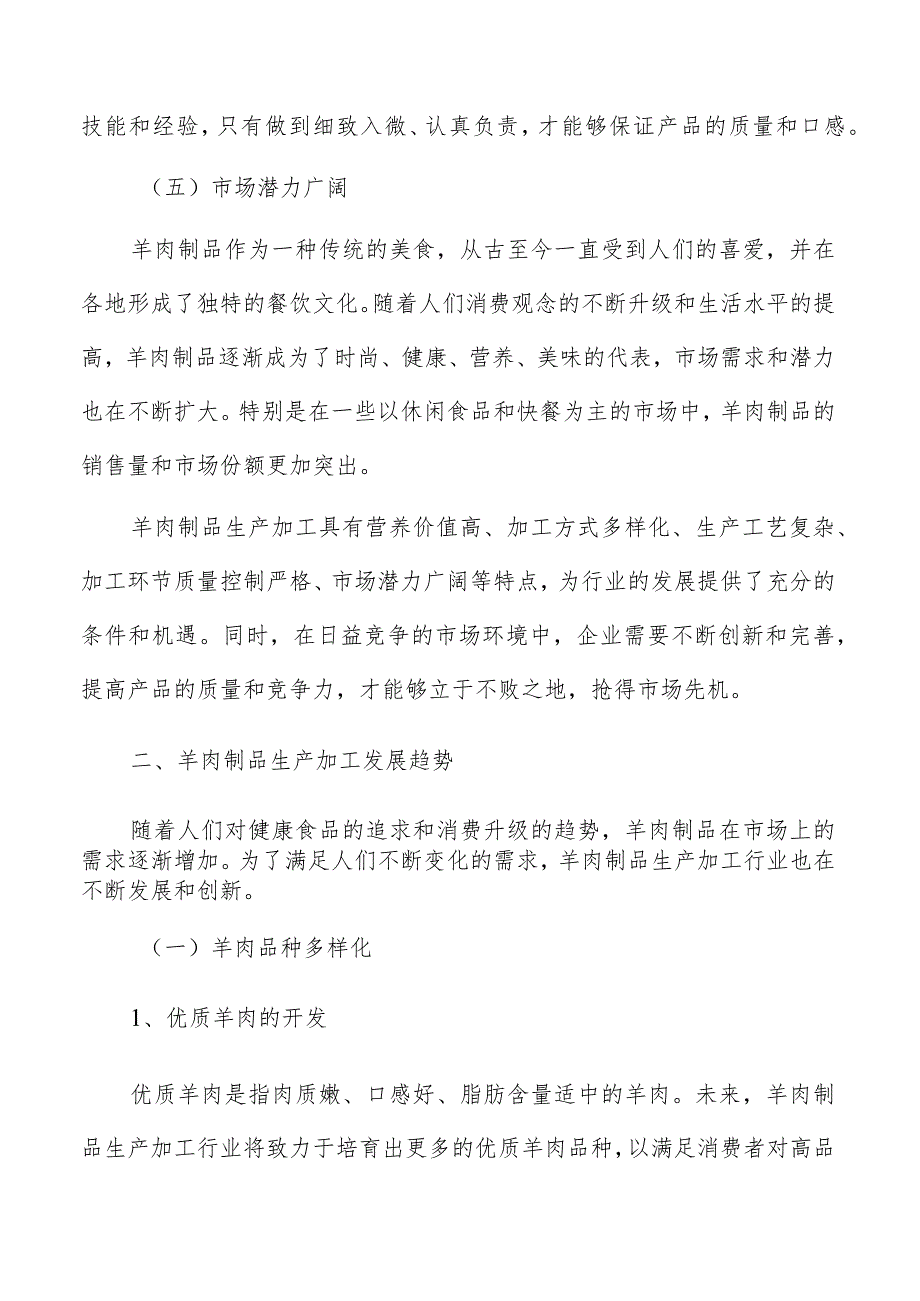 技能和经验，只有做到细致入微、认真负责，才能够保证产品的质量和口感。
（五）市场潜力广阔
羊肉制品作为一种传统的美食，从古至今一直受到人们的喜爱，并在
各地形成了独特的餐饮文化。随着人们消费观念的不断升级和生活水平的提
高，羊肉制品逐渐成为了时尚、健康、营养、美味的代表，市场需求和潜力
也在不断扩大。特别是在一些以休闲食品和快餐为主的市场中，羊肉制品的
销售量和市场份额更加突出。
羊肉制品生产加工具有营养价值高、加工方式多样化、生产工艺复杂、
加工环节质量控制严格、市场潜力广阔等特点，为行业的发展提供了充分的
条件和机遇。同时，在日益竞争的市场环境中，企业需要不断创新和完善，
提高产品的质量和竞争力，才能够立于不败之地，抢得市场先机。
二、羊肉制品生产加工发展趋势
随着人们对健康食品的追求和消费升级的趋势，羊肉制品在市场上的
需求逐渐增加。为了满足人们不断变化的需求，羊肉制品生产加工行业也在
不断发展和创新。
（一）羊肉品种多样化
1、优质羊肉的开发
优质羊肉是指肉质嫩、口感好、脂肪含量适中的羊肉。未来，羊肉制
品生产加工行业将致力于培育出更多的优质羊肉品种，以满足消费者对高品